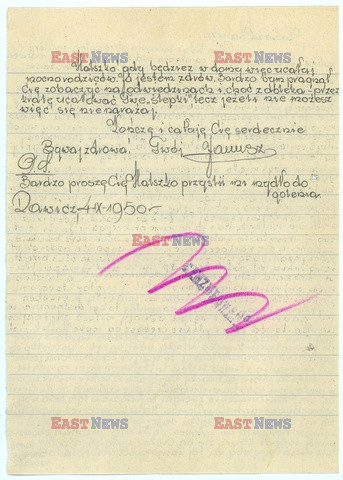 Halszko gdy będziesz w domu więc ucałuj
mocno rodziców. Ja jestem zdrów. Bardzo bym pragnął
Cię zobaczyć na odwiedzinach i choć z daleka przez
kratę ucałować Twe ślepki lecz jeżeli nie możesz
więc się nie narażaj.
Kończę i całuję Cię serdecznie
Bywaj zdrowa! Twój Janusz
P.S.
Bardzo proszę Cię Halszko przyślij mi mydło do
golenia.
Rawicz-4-IX-1950-r.
EAST NEWS
EAST NEWS
EAST NEWS
EAST NEWS